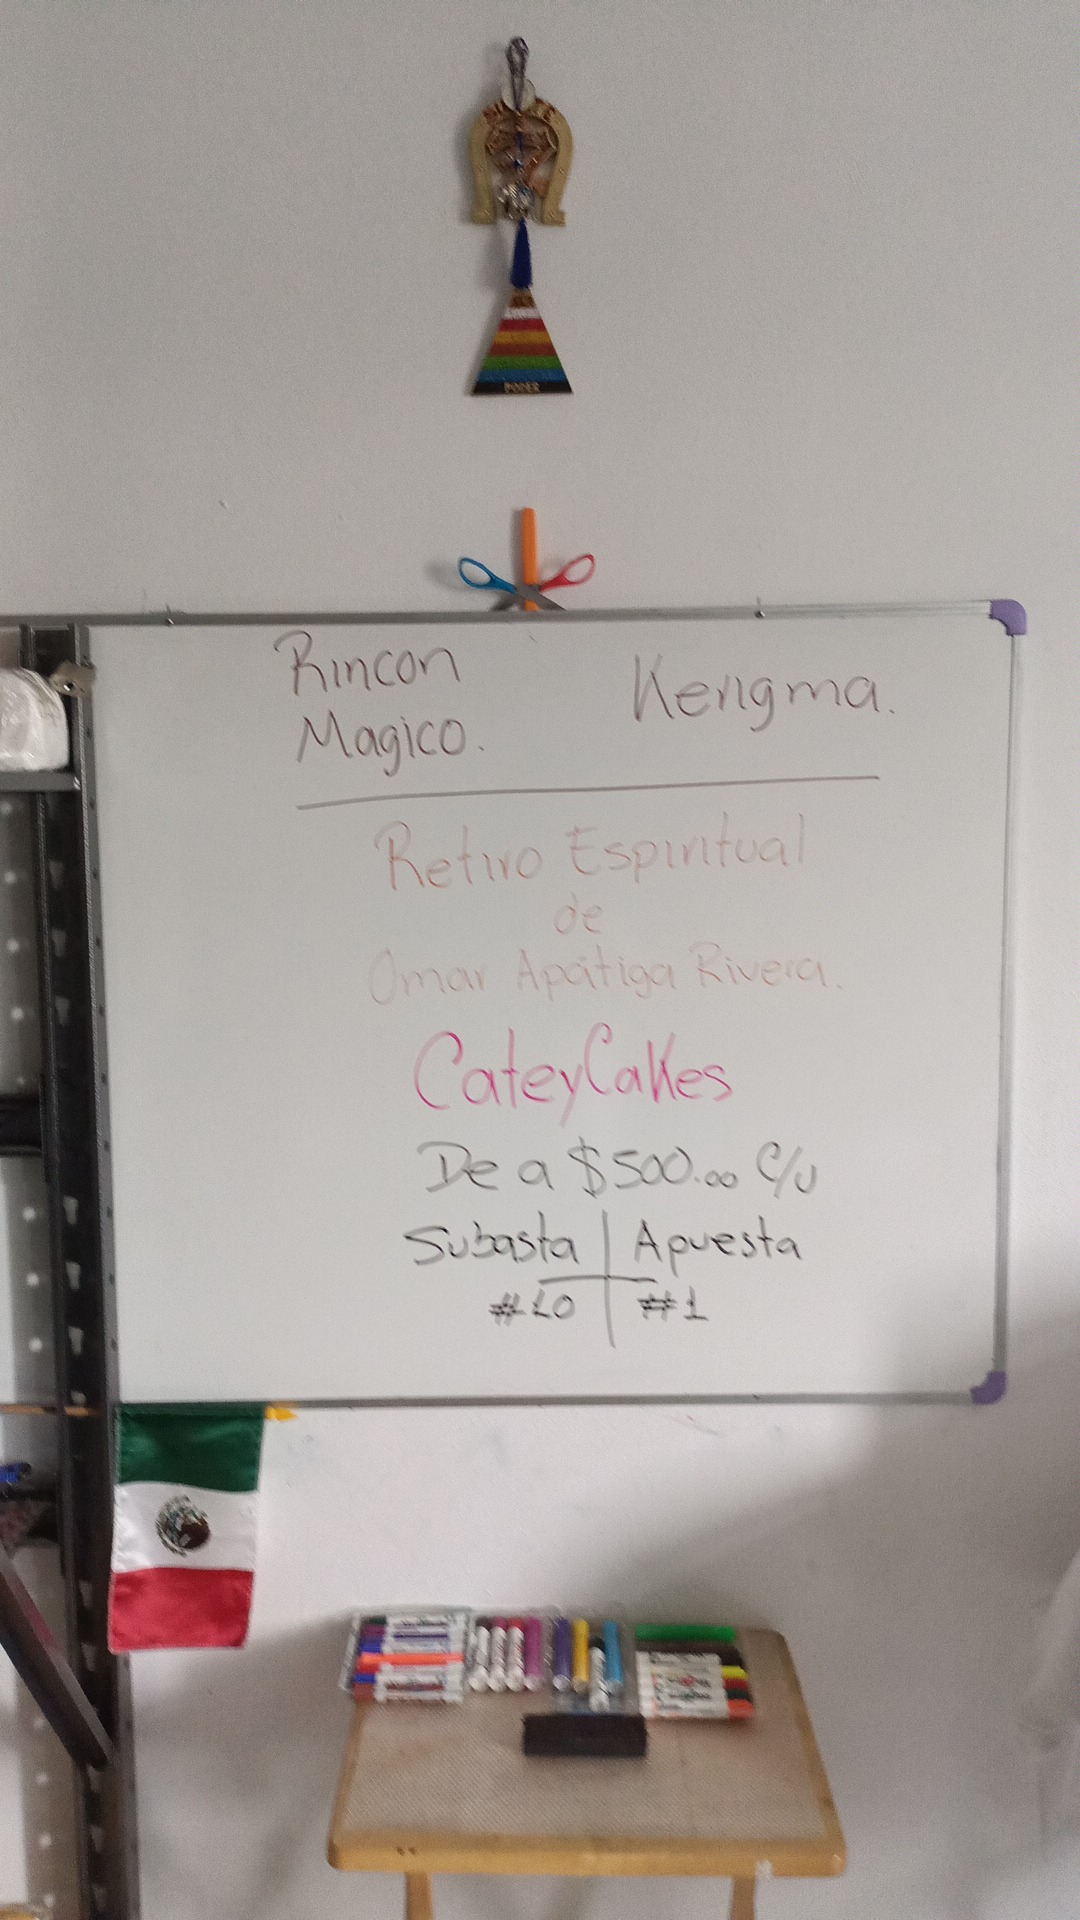 PODER
Rincon
Magico.
Kengma.
Retiro Espiritual
de
Omar Apátiga Rivera.
CateyCakes
De a $500.00 c/u
Subasta | Apuesta
#10 | #1